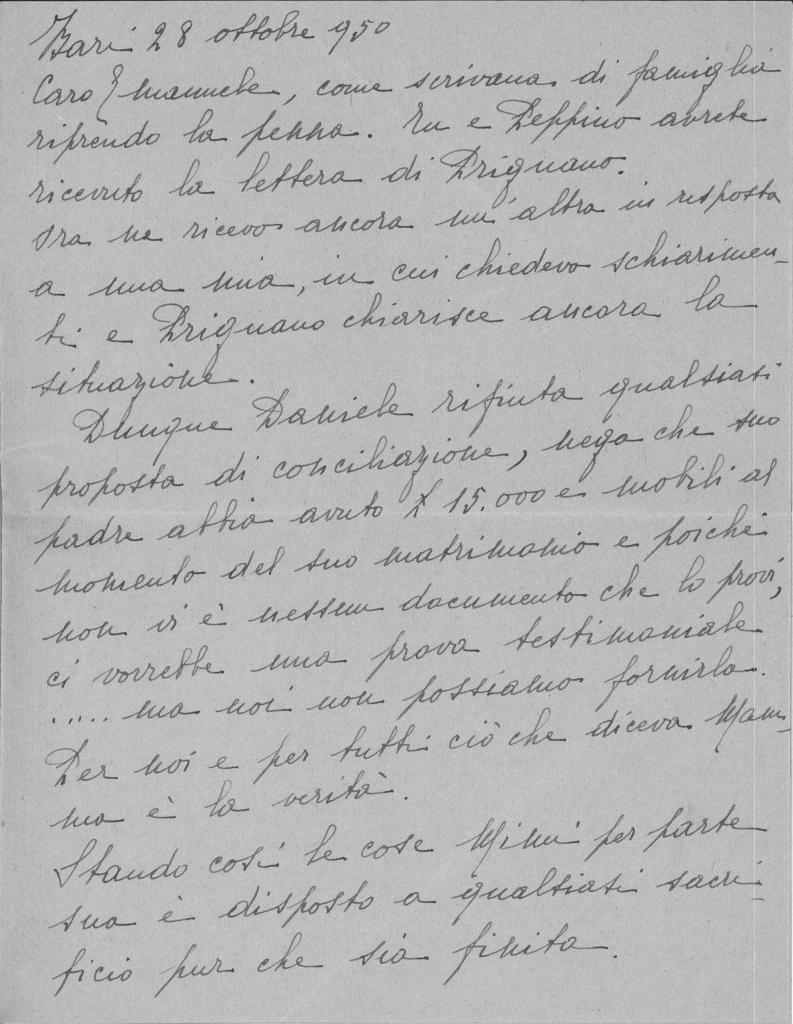 Bari 28 ottobre 950
Caro Emanuele, come scrivana di famiglia
riprendo la penna. Tu e Peppino avrete
ricevuto la lettera di Prignano.
Ora ne ricevo ancora un'altra in risposta
a una mia, in cui chiedevo schiarimen-
ti e Prignano chiarisce ancora la
situazione.
Dunque Daniele rifiuta qualsiasi
proposta di conciliazione, nega che suo
padre abbia avuto £ 15.000 e mobili al
momento del suo matrimonio e poiché
non vi è nessun documento che lo provi,
ci vorrebbe una prova testimoniale
..... ma noi non possiamo fornirla.
Per noi e per tutti ciò che diceva Mam-
ma è la verità.
Stando così le cose Mimì per parte
sua è disposto a qualsiasi sacri-
ficio pur che sia finita.